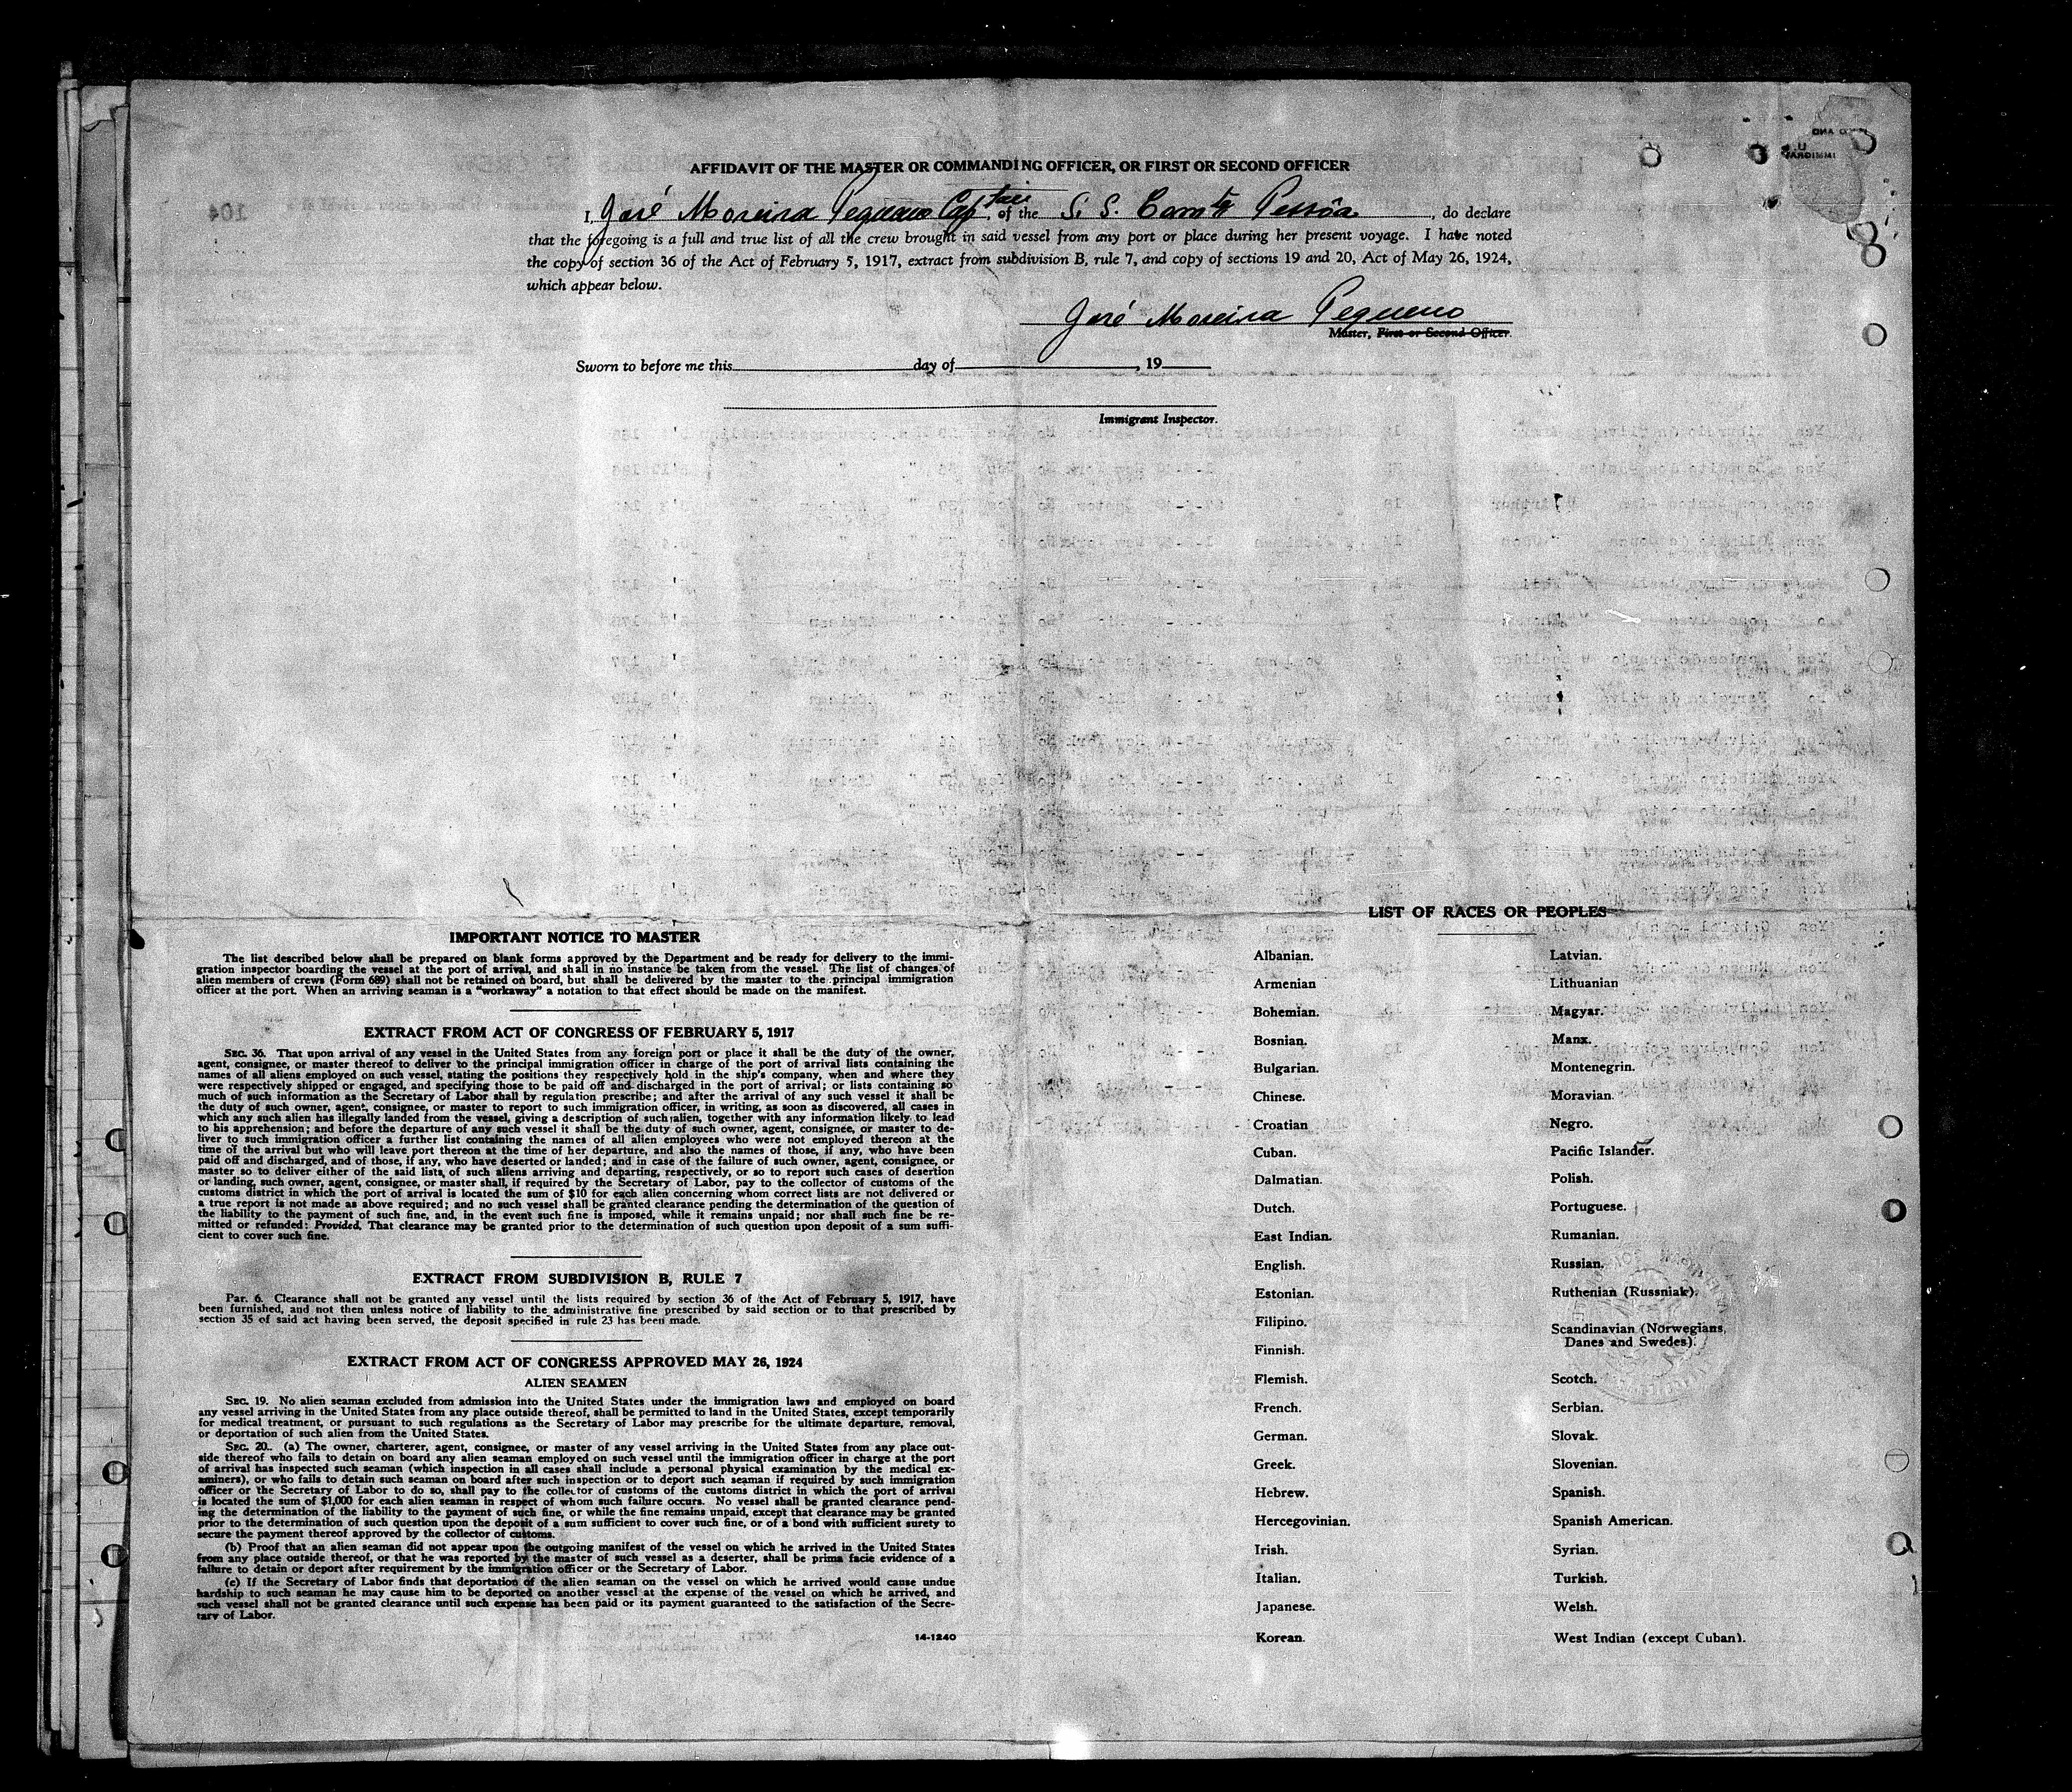 AFFIDAVIT OF THE MASTER OR COMMANDING OFFICER, OR FIRST OR SECOND OFFICER
I, José Moreira Pequeno Captain, of the S. S. Comte Pessôa, do declare
that the foregoing is a full and true list of all the crew brought in said vessel from any port or place during her present voyage. I have noted
the copy of section 36 of the Act of February 5, 1917, extract from subdivision B, rule 7, and copy of sections 19 and 20, Act of May 26, 1924,
which appear below.
José Moreira Pequeno
Master, First or Second Officer.
Sworn to before me this day of , 19
Immigrant Inspector.
IMPORTANT NOTICE TO MASTER
The list described below shall be prepared on blank forms approved by the Department and be ready for delivery to the immi-
gration inspector boarding the vessel at the port of arrival, and shall in no instance be taken from the vessel. The list of changes of
alien members of crews (Form 689) shall not be retained on board, but shall be delivered by the master to the principal immigration
officer at the port. When an arriving seaman is a "workaway" a notation to that effect should be made on the manifest.
EXTRACT FROM ACT OF CONGRESS OF FEBRUARY 5, 1917
SEC. 36. That upon arrival of any vessel in the United States from any foreign port or place it shall be the duty of the owner,
agent, consignee, or master thereof to deliver to the principal immigration officer in charge of the port of arrival lists containing the
names of all aliens employed on such vessel, stating the positions they respectively hold in the ship's company, when and where they
were respectively shipped or engaged, and specifying those to be paid off and discharged in the port of arrival; or lists containing so
much of such information as the Secretary of Labor shall by regulation prescribe; and after the arrival of any such vessel it shall be
the duty of such owner, agent, consignee, or master to report to such immigration officer, in writing, as soon as discovered, all cases in
which any such alien has illegally landed from the vessel, giving a description of such alien, together with any information likely to lead
to his apprehension; and before the departure of any such vessel it shall be the duty of such owner, agent, consignee, or master to de-
liver to such immigration officer a further list containing the names of all alien employees who were not employed thereon at the
time of the arrival but who will leave port thereon at the time of her departure, and also the names of those, if any, who have been
paid off and discharged, and of those, if any, who have deserted or landed; and in case of the failure of such owner, agent, consignee, or
master so to deliver either of the said lists, of such aliens arriving and departing, respectively, or so to report such cases of desertion
or landing, such owner, agent, consignee, or master shall, if required by the Secretary of Labor, pay to the collector of customs of the
customs district in which the port of arrival is located the sum of $10 for each alien concerning whom correct lists are not delivered or
a true report is not made as above required; and no such vessel shall be granted clearance pending the determination of the question of
the liability to the payment of such fine, and, in the event such fine is imposed, while it remains unpaid; nor shall such fine be re-
mitted or refunded: Provided, That clearance may be granted prior to the determination of such question upon deposit of a sum suffi-
cient to cover such fine.
EXTRACT FROM SUBDIVISION B, RULE 7
Par. 6. Clearance shall not be granted any vessel until the lists required by section 36 of the Act of February 5, 1917, have
been furnished, and not then unless notice of liability to the administrative fine prescribed by said section or to that prescribed by
section 35 of said act having been served, the deposit specified in rule 23 has been made.
EXTRACT FROM ACT OF CONGRESS APPROVED MAY 26, 1924
ALIEN SEAMEN
SEC. 19. No alien seaman excluded from admission into the United States under the immigration laws and employed on board
any vessel arriving in the United States from any place outside thereof, shall be permitted to land in the United States, except temporarily
for medical treatment, or pursuant to such regulations as the Secretary of Labor may prescribe for the ultimate departure, removal,
or deportation of such alien from the United States.
SEC. 20. (a) The owner, charterer, agent, consignee, or master of any vessel arriving in the United States from any place out-
side thereof who fails to detain on board any alien seaman employed on such vessel until the immigration officer in charge at the port
of arrival has inspected such seaman (which inspection in all cases shall include a personal physical examination by the medical ex-
aminers), or who fails to detain such seaman on board after such inspection or to deport such seaman if required by such immigration
officer or the Secretary of Labor to do so, shall pay to the collector of customs of the customs district in which the port of arrival
is located the sum of $1,000 for each alien seaman in respect of whom such failure occurs. No vessel shall be granted clearance pend-
ing the determination of the liability to the payment of such fine, or while the fine remains unpaid, except that clearance may be granted
prior to the determination of such question upon the deposit of a sum sufficient to cover such fine, or of a bond with sufficient surety to
secure the payment thereof approved by the collector of customs.
(b) Proof that an alien seaman did not appear upon the outgoing manifest of the vessel on which he arrived in the United States
from any place outside thereof, or that he was reported by the master of such vessel as a deserter, shall be prima facie evidence of a
failure to detain or deport after requirement by the immigration officer or the Secretary of Labor.
(c) If the Secretary of Labor finds that deportation of the alien seaman on the vessel on which he arrived would cause undue
hardship to such seaman he may cause him to be deported on another vessel at the expense of the vessel on which he arrived, and
such vessel shall not be granted clearance until such expense has been paid or its payment guaranteed to the satisfaction of the Secre-
tary of Labor.
14-1240
LIST OF RACES OR PEOPLES
Albanian.
Armenian
Bohemian.
Bosnian.
Bulgarian.
Chinese.
Croatian
Cuban.
Dalmatian.
Dutch.
East Indian.
English.
Estonian.
Filipino.
Finnish.
Flemish.
French.
German.
Greek.
Hebrew.
Hercegovinian.
Irish.
Italian.
Japanese.
Korean.
Latvian.
Lithuanian
Magyar.
Manx.
Montenegrin.
Moravian.
Negro.
Pacific Islander.
Polish.
Portuguese.
Rumanian.
Russian.
Ruthenian (Russniak).
Scandinavian (Norwegians,
Danes and Swedes).
Scotch.
Serbian.
Slovak.
Slovenian.
Spanish.
Spanish American.
Syrian.
Turkish.
Welsh.
West Indian (except Cuban).